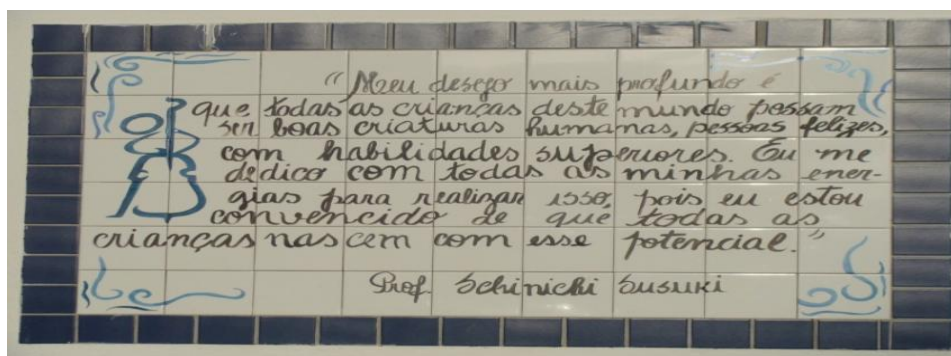 "Meu desejo mais profundo é
que todas as crianças deste mundo possam
ser boas criaturas humanas, pessoas felizes,
com habilidades superiores. Eu me
dedico com todas as minhas ener-
gias para realizar isso, pois eu estou
convencido de que todas as
crianças nascem com esse potencial."
Prof. Schinichi Susuki